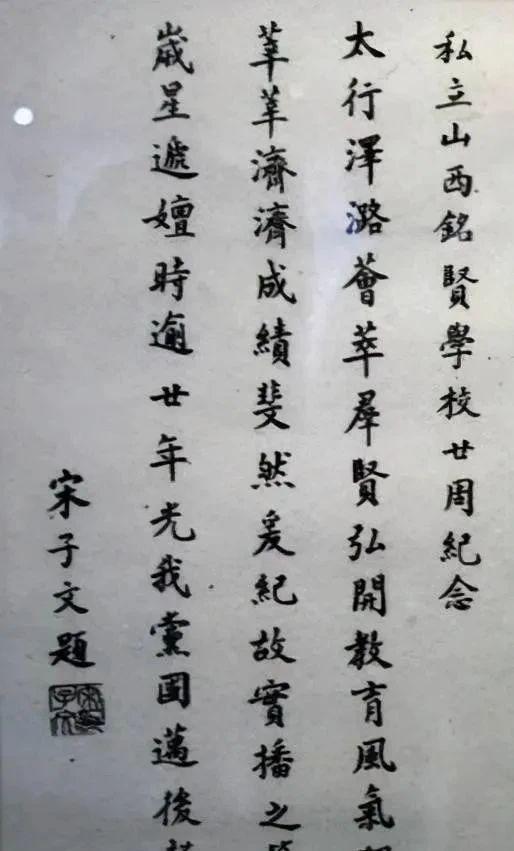 私立山西銘賢學校廿周紀念
太行澤潞薈萃羣賢弘開教育風氣
莘莘濟濟成績斐然爰紀故實播之
歲星遞嬗時逾廿年光我黨國邁後
宋子文題